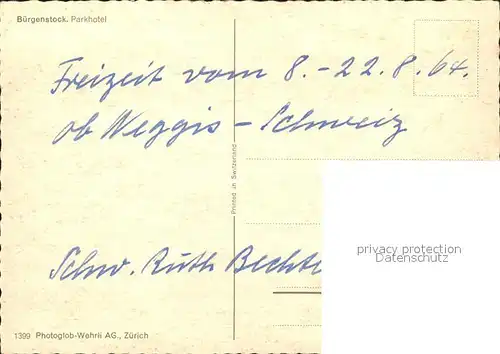 Bürgenstock. Parkhotel
Freizeit vom 8.-22.8.64.
ob Weggis - Schweiz
Printed in Switzerland
privacy protection
Datenschutz
Schw. Ruth
1399 Photoglob-Wehrli AG., Zürich